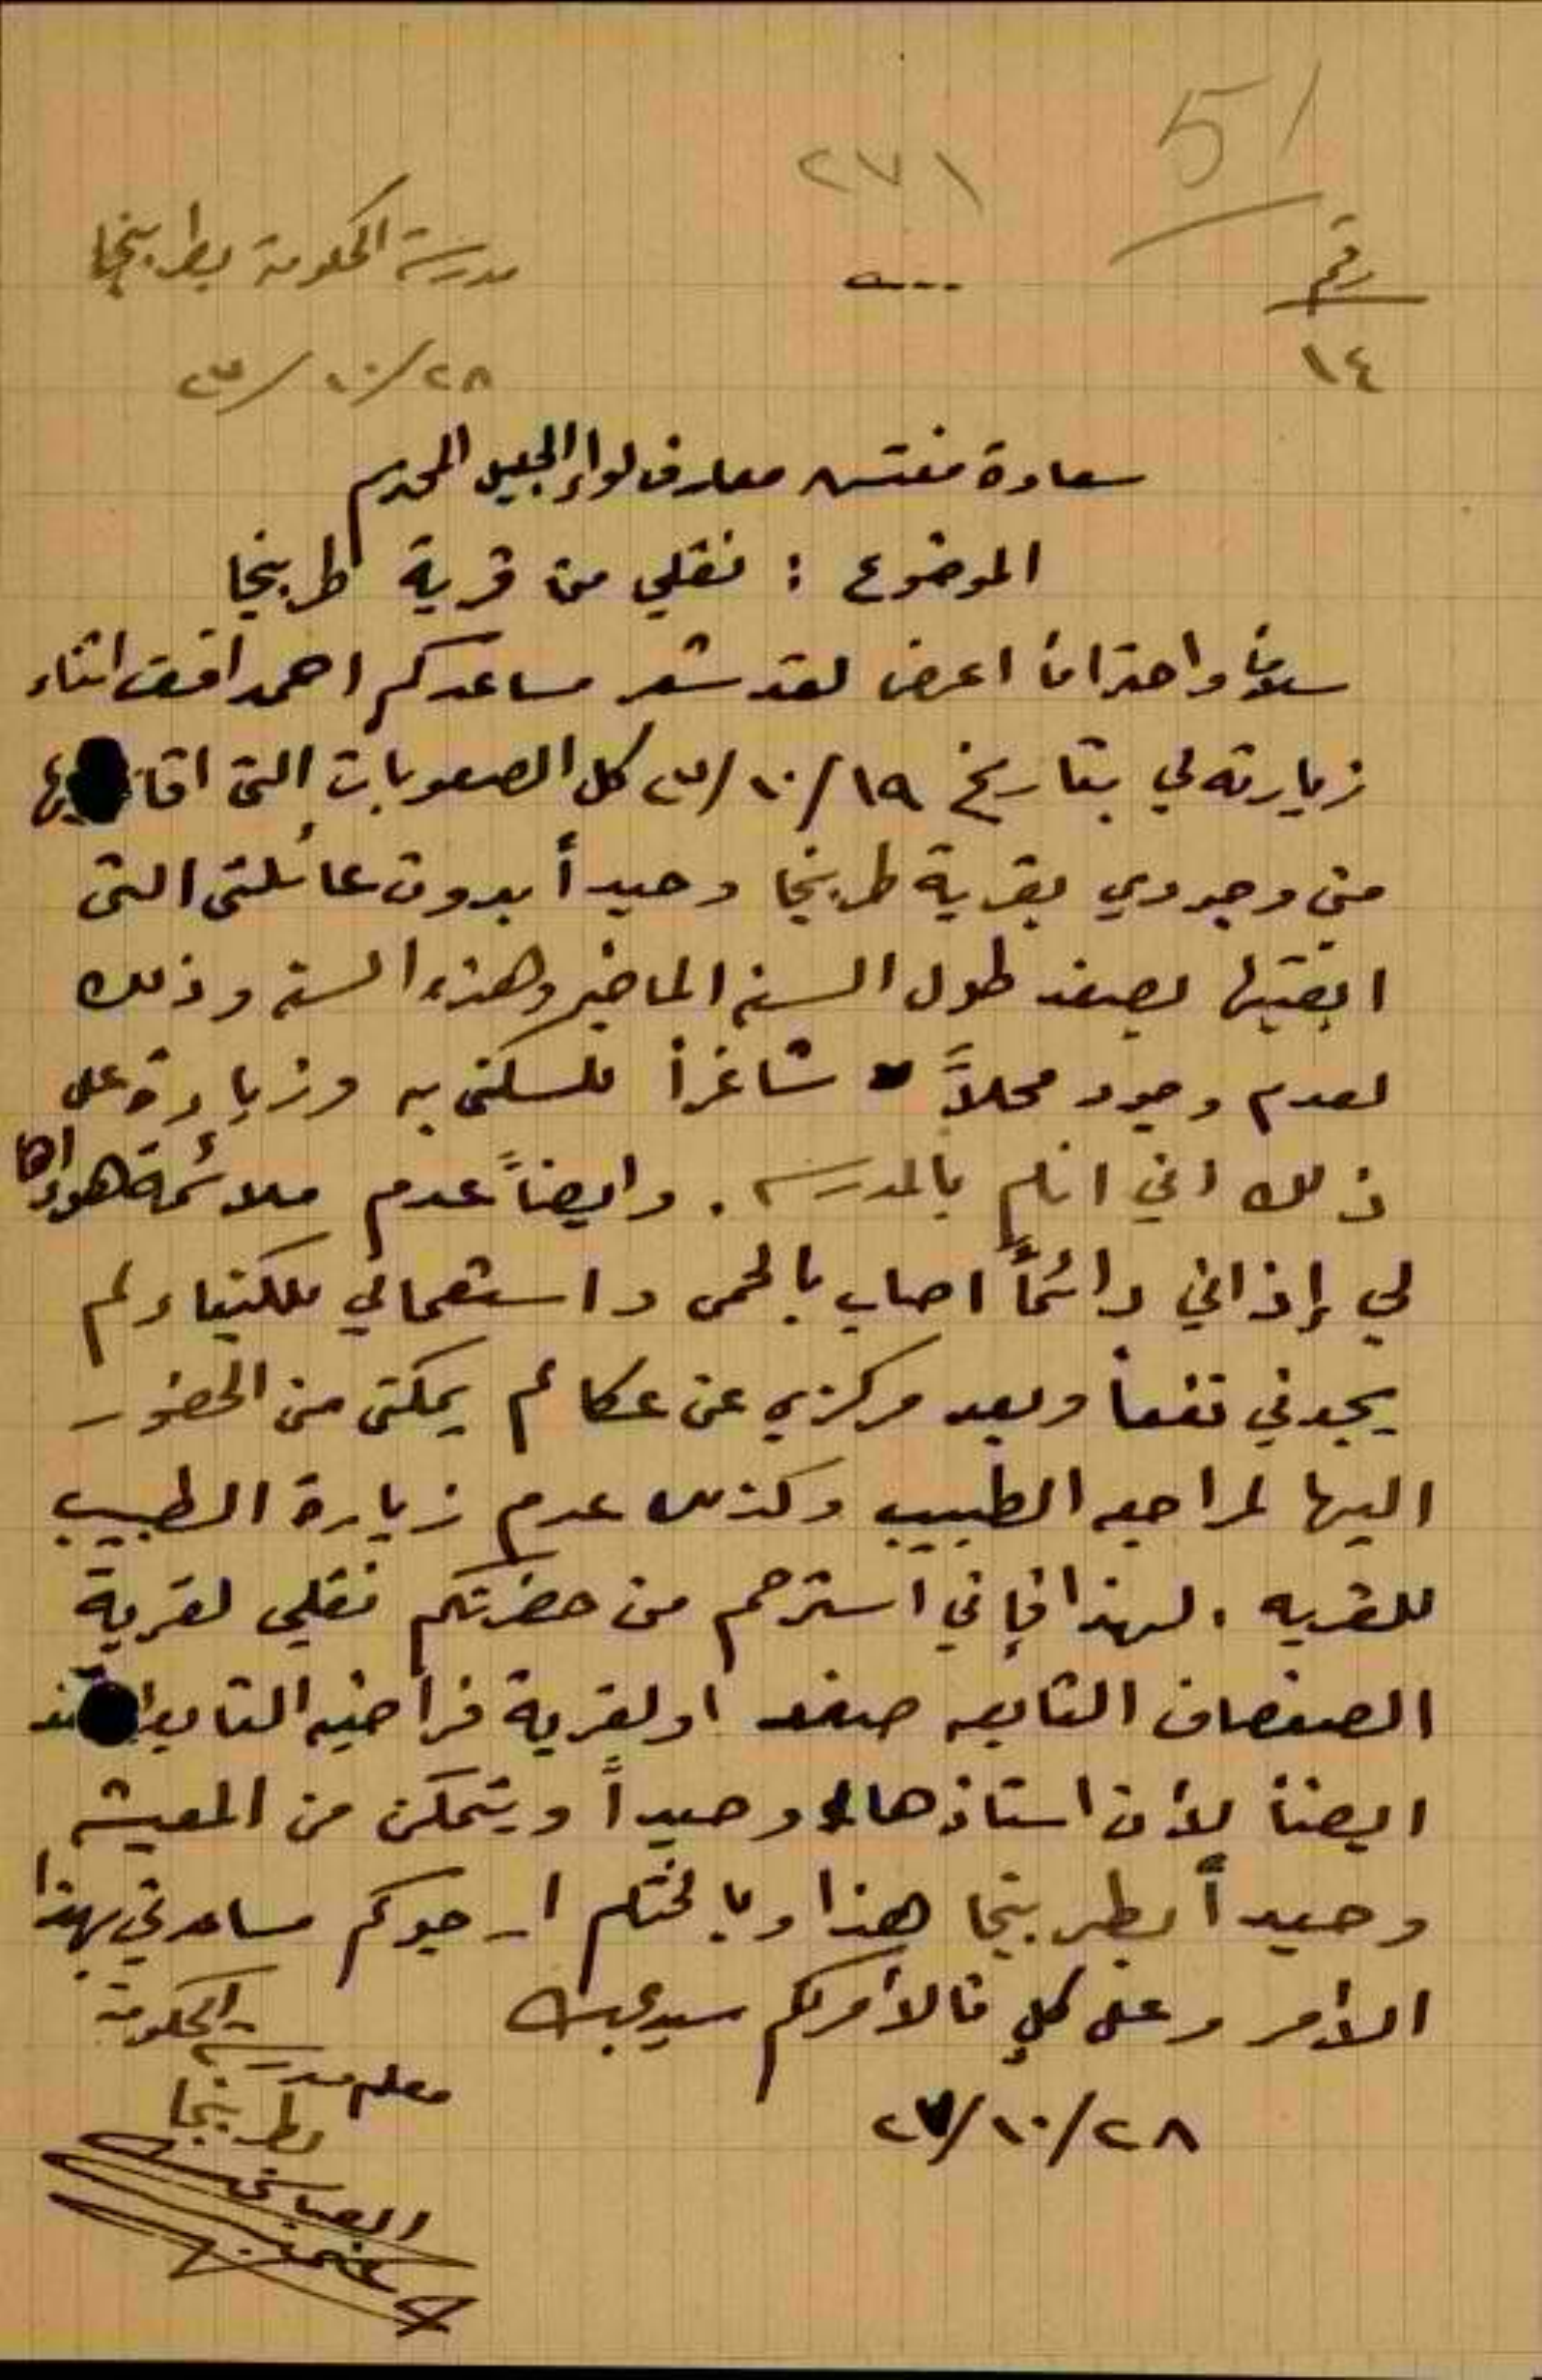 51
٢٧١
رقم
١٤
مدرسة الحكومة بطربيخا
٢٨/١٠/٢٧
سعادة مفتش معارف لواء الجليل المحترم
الموضوع : نقلي من قرية طربيخا
سلاماً واحتراماً اعرض لقد شعر مساعدكم احمد افندي اثناء
زيارته لي بتاريخ ١٩/١٠/٢٧ كل الصعوبات التي
من وجودي بقرية طربيخا وحيداً بدون عائلتي التي
ابقيتها بصفد طول السنه الماضيه وهذه السنه وذلك
لعدم وجود محلاً شاغراً للسكنى به وزيادة على
ذلك اني انام بالمدرسه . وايضاً عدم ملائمة هواها
لي إذ اني دائماً اصاب بالحمى واستعمالي للكينا ولم
يجدني نفعاً وبعد مركزي عن عكا لم يمكني من الحضور
اليها لمراجعه الطبيب وكذلك عدم زيارة الطبيب
للقريه . لهذا فإني استرحم من حضرتكم نقلي لقرية
الصفصاف التابعه صفد او لقرية فراضيه التابعه
ايضاً لأن استاذها وحيداً ويتمكن من المعيشه
وحيداً بطربيخا هذا وبالختام ارجوكم مساعدتي بهذا
الأمر وعلى كلٍ فالأمر لكم سيدي
٢٨/١٠/٢٧
معلم مدرسة الحكومة
بطربيخا